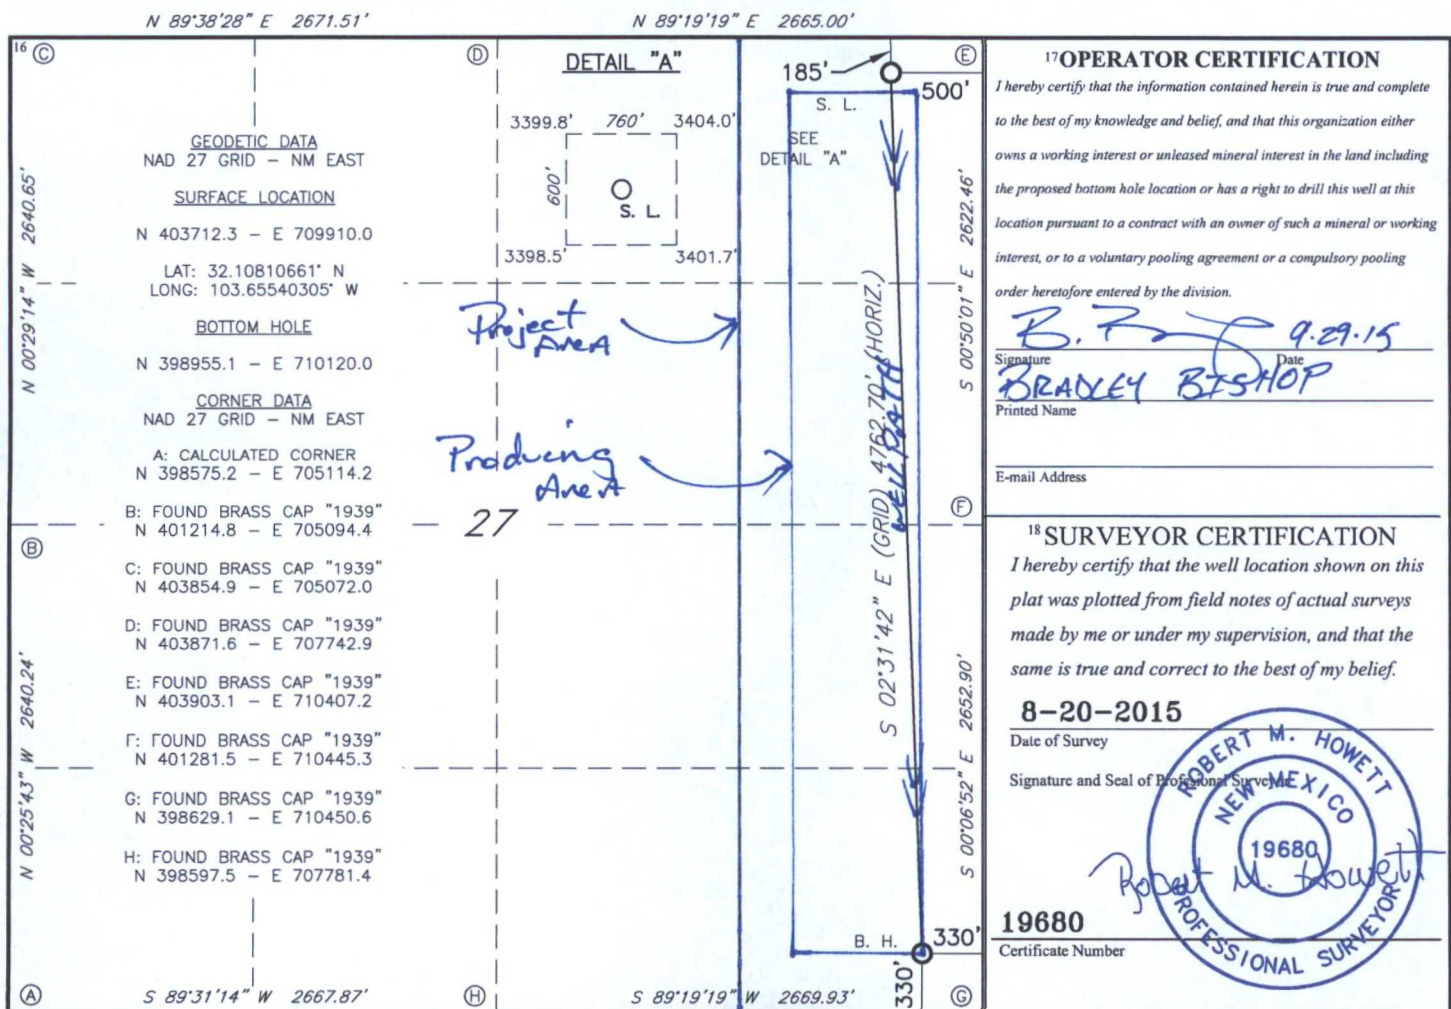 N 89°38'28" E 2671.51'
N 89°19'19" E 2665.00'
16
C
D
E
DETAIL "A"
3399.8' 760' 3404.0'
600'
S. L.
3398.5' 3401.7'
185'
500'
S. L.
SEE
DETAIL "A"
N 00°29'14" W 2640.65'
S 00°50'01" E 2622.46'
GEODETIC DATA
NAD 27 GRID – NM EAST
SURFACE LOCATION
N 403712.3 – E 709910.0
LAT: 32.10810661° N
LONG: 103.65540305° W
BOTTOM HOLE
N 398955.1 – E 710120.0
CORNER DATA
NAD 27 GRID – NM EAST
A: CALCULATED CORNER
N 398575.2 – E 705114.2
B: FOUND BRASS CAP "1939"
N 401214.8 – E 705094.4
C: FOUND BRASS CAP "1939"
N 403854.9 – E 705072.0
D: FOUND BRASS CAP "1939"
N 403871.6 – E 707742.9
E: FOUND BRASS CAP "1939"
N 403903.1 – E 710407.2
F: FOUND BRASS CAP "1939"
N 401281.5 – E 710445.3
G: FOUND BRASS CAP "1939"
N 398629.1 – E 710450.6
H: FOUND BRASS CAP "1939"
N 398597.5 – E 707781.4
Project
Area
Producing
Area
27
S 02°31'42" E (GRID) 4762.70' (HORIZ.)
WELL PATH
B
F
N 00°25'43" W 2640.24'
S 00°06'52" E 2652.90'
B. H.
330'
330'
A
S 89°31'14" W 2667.87'
H
S 89°19'19" W 2669.93'
G
17 OPERATOR CERTIFICATION
I hereby certify that the information contained herein is true and complete
to the best of my knowledge and belief, and that this organization either
owns a working interest or unleased mineral interest in the land including
the proposed bottom hole location or has a right to drill this well at this
location pursuant to a contract with an owner of such a mineral or working
interest, or to a voluntary pooling agreement or a compulsory pooling
order heretofore entered by the division.
9.29.15
Signature Date
BRADLEY BISHOP
Printed Name
E-mail Address
18 SURVEYOR CERTIFICATION
I hereby certify that the well location shown on this
plat was plotted from field notes of actual surveys
made by me or under my supervision, and that the
same is true and correct to the best of my belief.
8-20-2015
Date of Survey
Signature and Seal of Professional Surveyor
ROBERT M. HOWETT
NEW MEXICO
19680
PROFESSIONAL SURVEYOR
Robert M. Howett
19680
Certificate Number